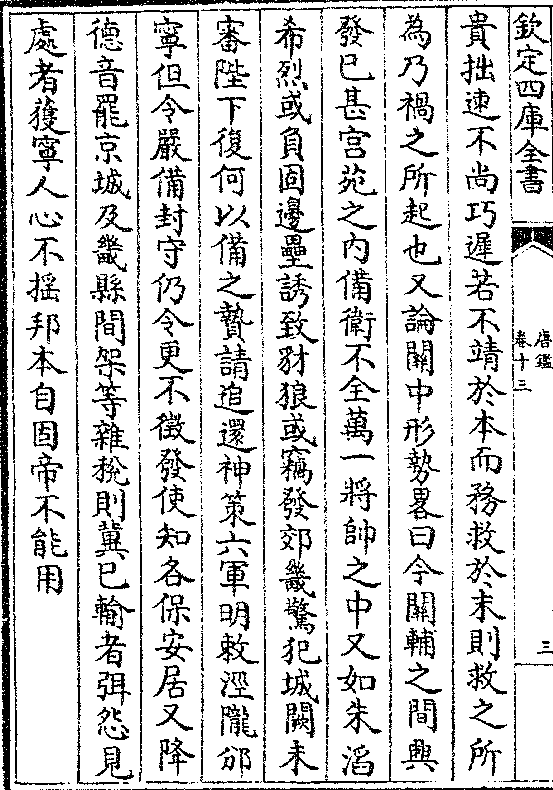 欽定四庫全書
唐鑑
卷十三
三
貴拙速不尚巧遲若不靖於本而務救於末則救之所
為乃禍之所起也又論關中形勢畧曰今關輔之間興
發已甚宫苑之内備衛不全萬一將帥之中又如朱滔
希烈或負固邊壘誘致豺狼或竊發郊畿驚犯城闕未
審陛下復何以備之贄請追還神策六軍明敕涇隴邠
寧但令嚴備封守仍令更不徴發使知各保安居又降
德音罷京城及畿縣間架等雜稅則冀已輸者弭怨見
處者獲寧人心不摇邦本自固帝不能用